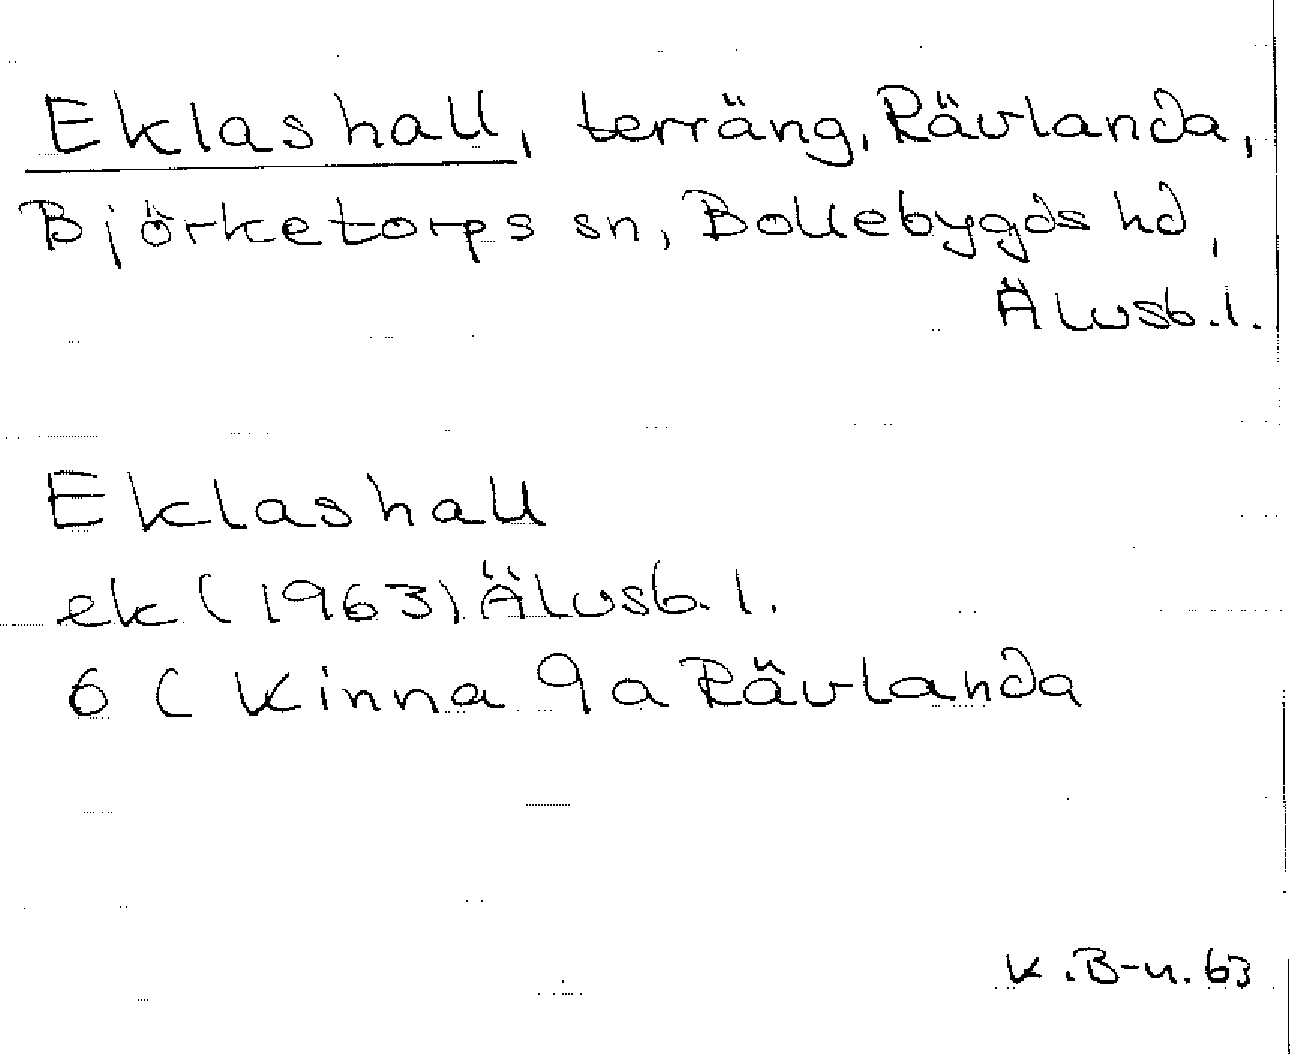 Eklashall, terräng, Rävlanda,
Björketorps sn, Bollebygds hd,
Älvsb.l.
Eklashall
ek (1963) Älvsb. l.
6 ( Kinna 9a Rävlanda
K.B-n. 63